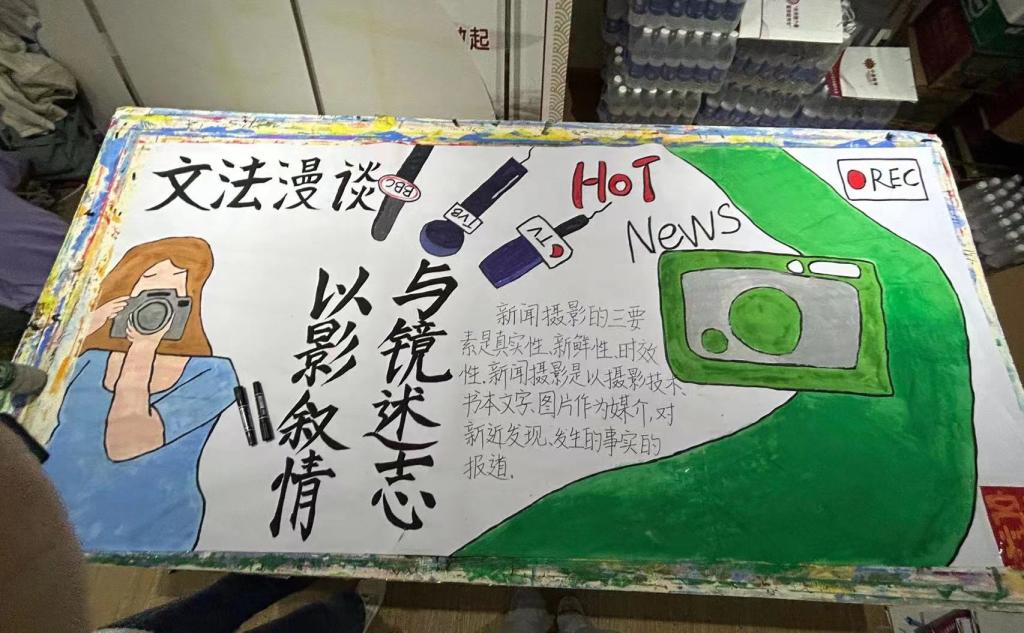 起
文法漫谈
BBC
TVB
TV
HOT
NeWS
REC
与镜述志
以影叙情
新闻摄影的三要
素是真实性、新鲜性、时效
性.新闻摄影是以摄影技术、
书本文字、图片作为媒介,对
新近发现、发生的事实的
报道.